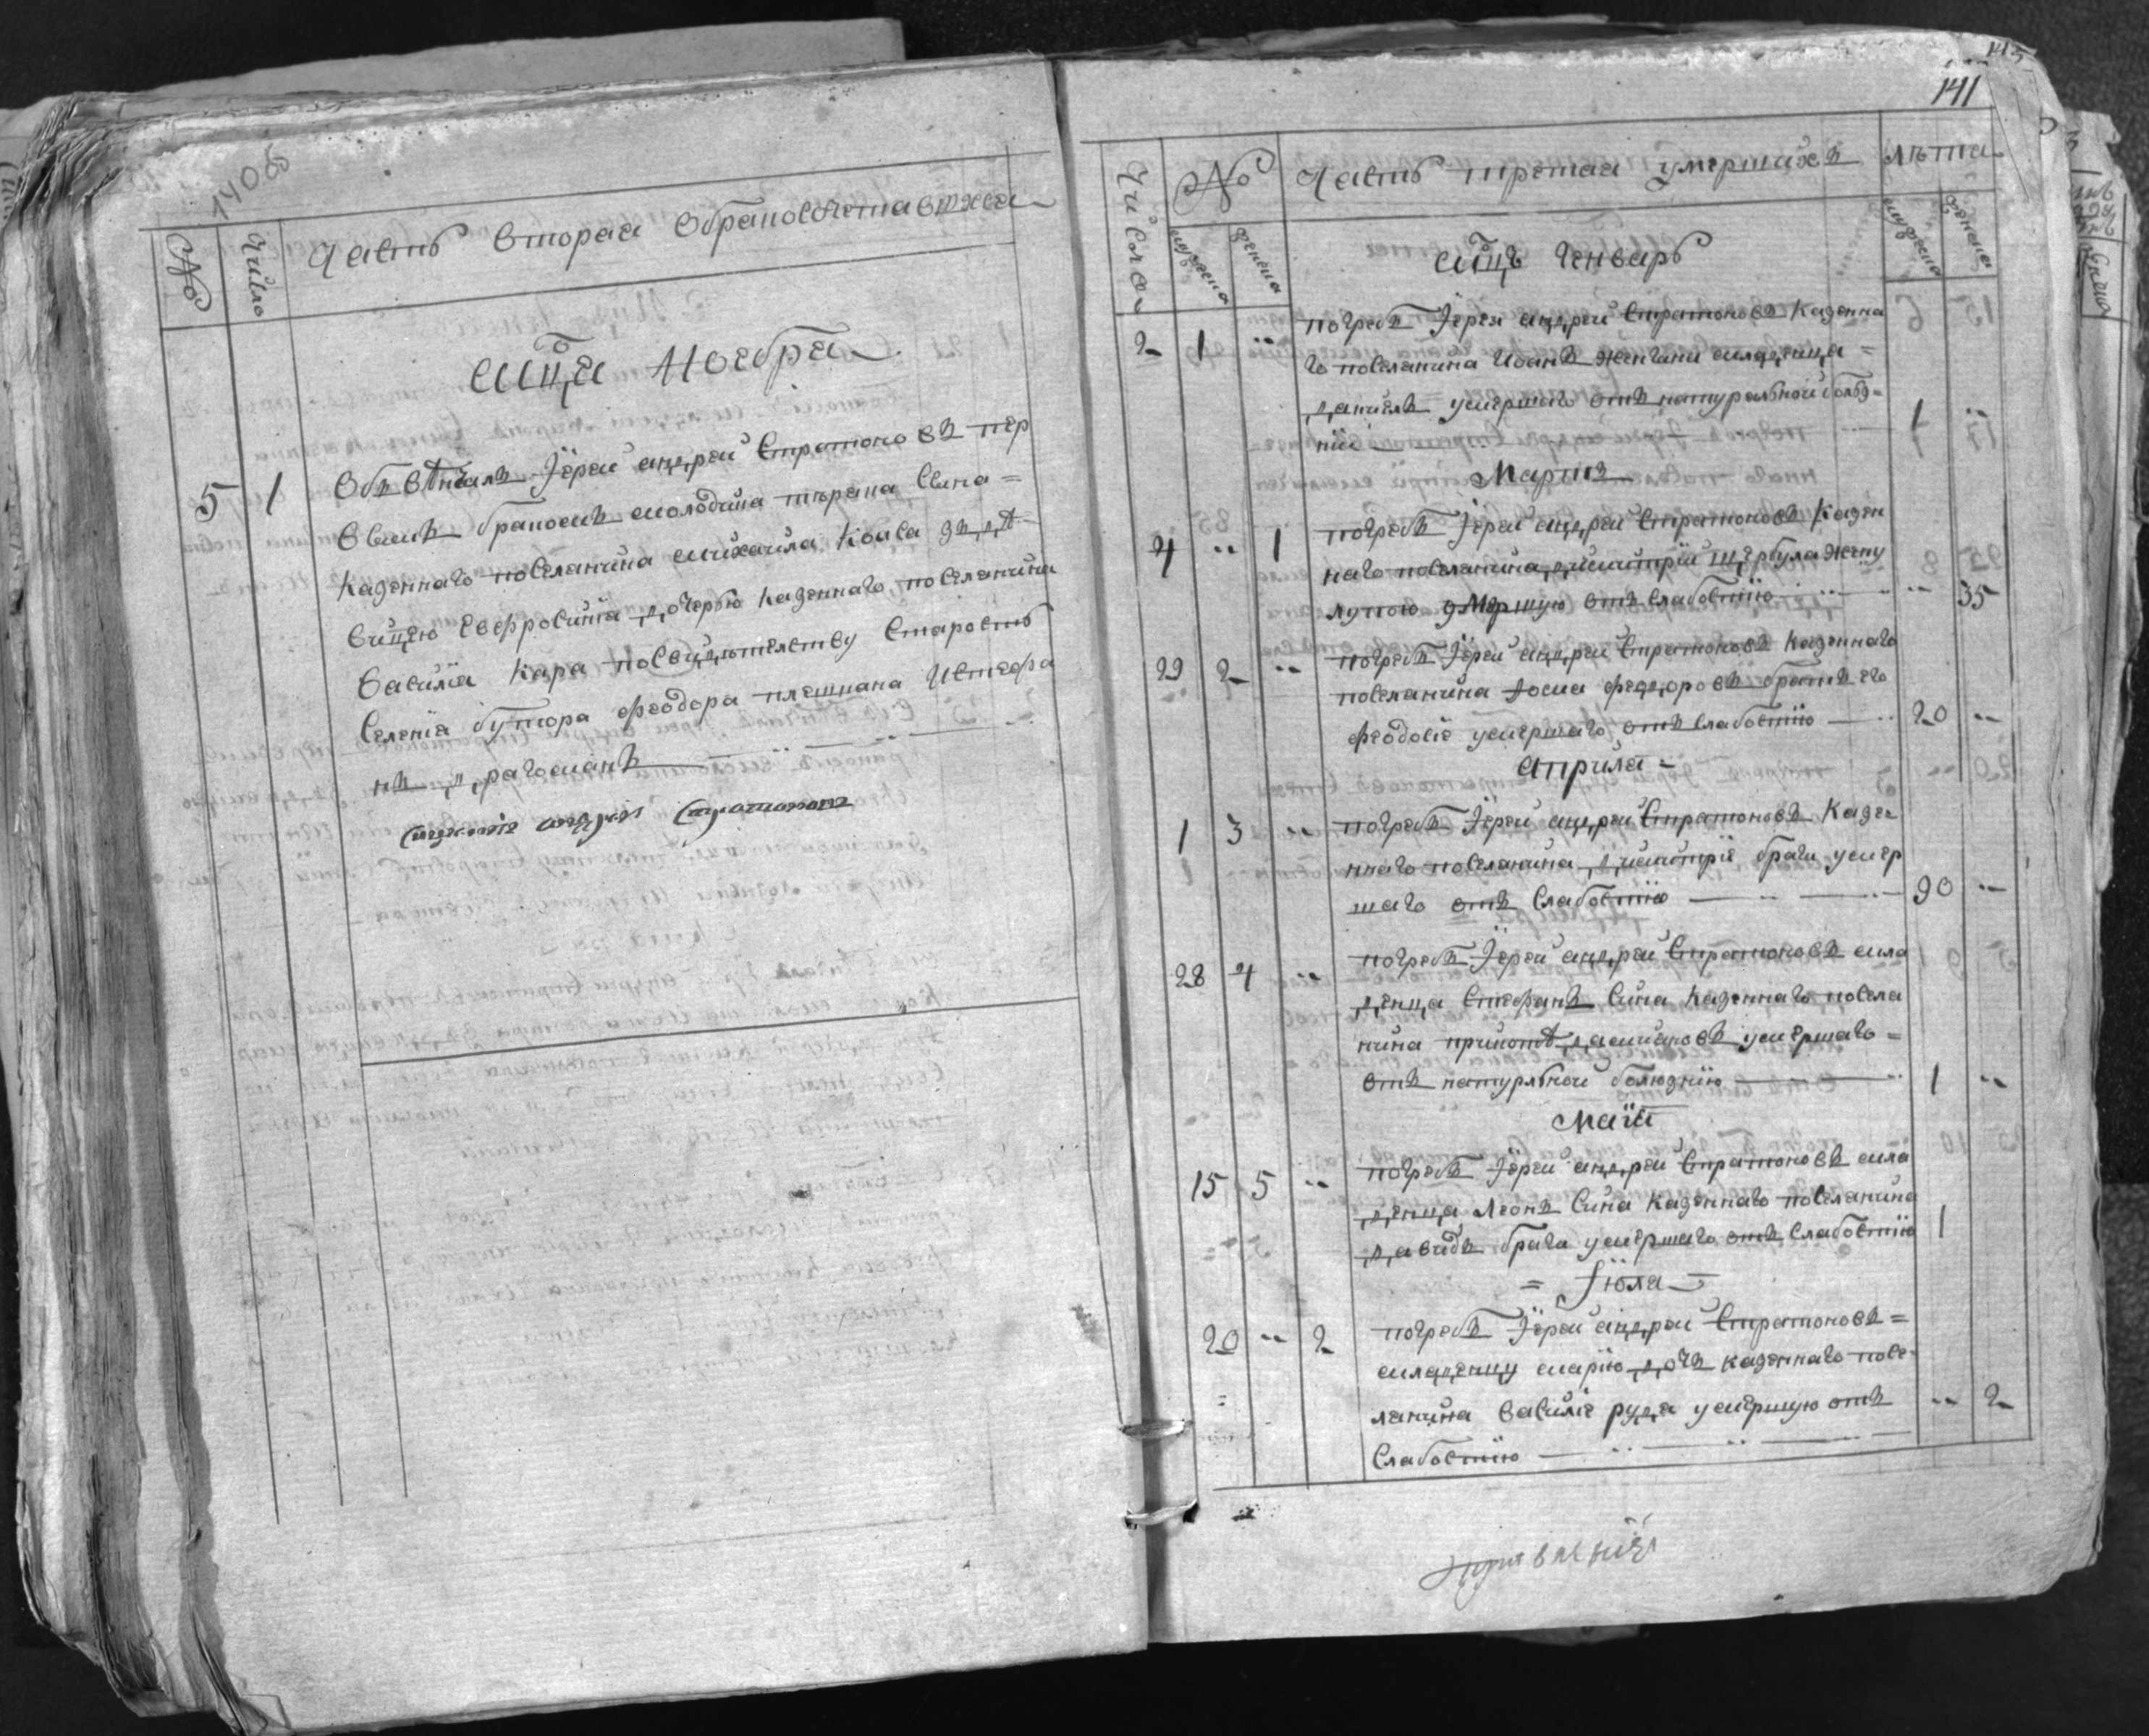 140об
№ Число Часть вторая Обраповѣчетавшихся
Мцⷭ҇а Ноебра
5 1 Объвѣнчалъ Іерей андрей Стратоновъ пер
вымъ бракомъ молодика Сина =
казеннаго поселанина михаила зъ дѣ
вицею Евфросиніа дочерью казеннаго поселанина
василіа Кара посвидѣтелству Старость
Селеніа бутора феодора плешкана Истефа
нъ драгоманъ
андрей Стратоновъ
141
Числа № Часть третаа умершихъ лѣта
мужеска женска мужеска женска
мⷭ҇цъ Генварь
2 1 " погребъ Іерей андрей Стратоновъ Казенна
го поселанина Иоанъ младенца =
данилъ умершаго отъ натуральной болѣз=
нїи 1 "
Мартъ
4 " 1 погребъ Іерей андрей Стратоновъ Казен
наго поселанина димитрїи щербула жену
лупою умершую отъ Слабостїю " 35
29 2 " погребъ Іерей андрей Стратоновъ Казеннаго
поселанина Фома федоровъ братъ его
феодосіе умершаго отъ слабостїю 20 "
априла =
1 3 " погребъ Іерей андрей Стратоновъ Казе=
ннаго поселанина димитріе брага умер
шаго отъ Слабостїю 90 "
28 4 " погребъ Іерей андрей Стратоновъ мла
денца Стефанъ Сина Казеннаго посела
нина умершаго =
отъ натурлной болюзнїю 1 "
маїа
15 5 " погребъ Іерей андрей Стратоновъ мла
денца Леонъ Сина казеннаго поселанина
давидъ брага умершаго отъ Слабостїю 1
= Іюла =
20 " 2 погребъ Іерей андрей Стратоновъ =
младенцу марїю дочъ казеннаго посе=
ланина василіе руда умершую отъ " 2
Слабостїю